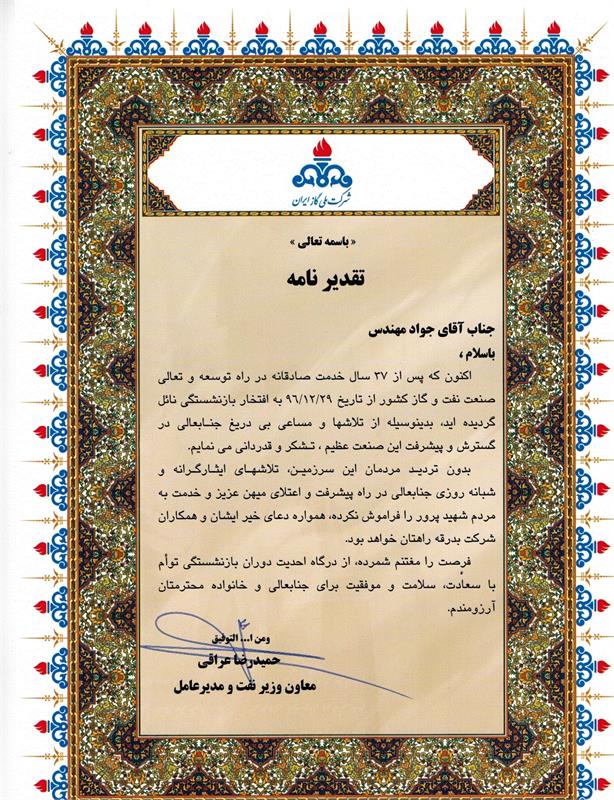 شرکت ملی گاز ایران
« باسمه تعالی »
تقدیر نامه
جناب آقای جواد مهندس
باسلام ،
اکنون که پس از ۳۷ سال خدمت صادقانه در راه توسعه و تعالی
صنعت نفت و گاز کشور از تاریخ ۹۶/۱۲/۲۹ به افتخار بازنشستگی نائل
گردیده اید، بدینوسیله از تلاشها و مساعی بی دریغ جنابعالی در
گسترش و پیشرفت این صنعت عظیم ، تشکر و قدردانی می نمایم.
بدون تردید مردمان این سرزمین، تلاشهای ایثارگرانه و
شبانه روزی جنابعالی در راه پیشرفت و اعتلای میهن عزیز و خدمت به
مردم شهید پرور را فراموش نکرده، همواره دعای خیر ایشان و همکاران
شرکت بدرقه راهتان خواهد بود.
فرصت را مغتنم شمرده، از درگاه احدیت دوران بازنشستگی توأم
با سعادت، سلامت و موفقیت برای جنابعالی و خانواده محترمتان
آرزومندم.
ومن ا... التوفیق
حمیدرضا عراقی
معاون وزیر نفت و مدیرعامل